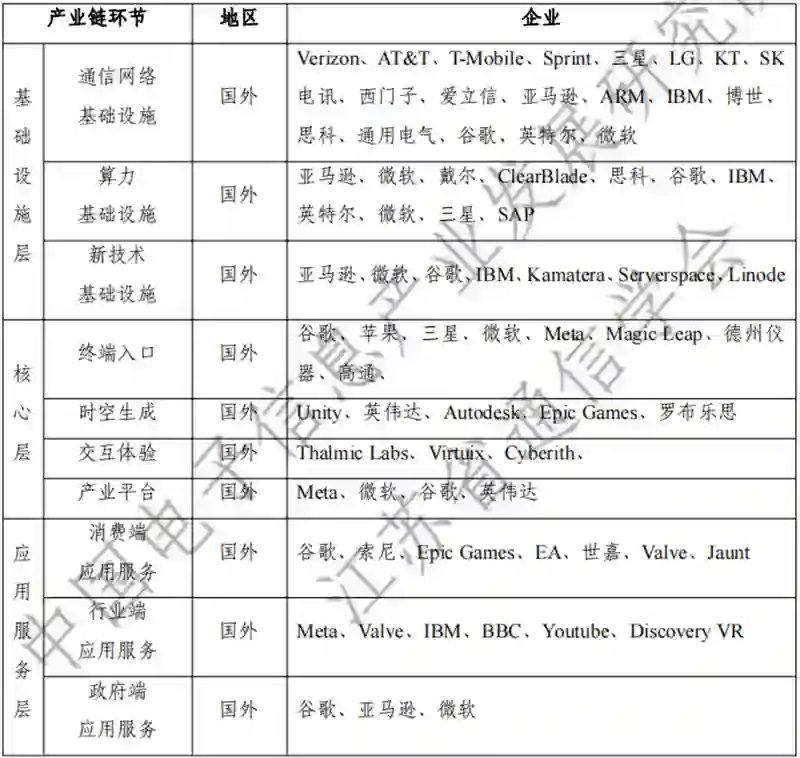 产业链环节 地区 企业
基础设施层
通信网络
基础设施
国外
Verizon、AT&T、T-Mobile、Sprint、三星、LG、KT、SK
电讯、西门子、爱立信、亚马逊、ARM、IBM、博世、
思科、通用电气、谷歌、英特尔、微软
算力
基础设施
国外
亚马逊、微软、戴尔、ClearBlade、思科、谷歌、IBM、
英特尔、微软、三星、SAP
新技术
基础设施
国外
亚马逊、微软、谷歌、IBM、Kamatera、Serverspace、Linode
核心层
终端入口
国外
谷歌、苹果、三星、微软、Meta、Magic Leap、德州仪
器、高通、
时空生成 国外 Unity、英伟达、Autodesk、Epic Games、罗布乐思
交互体验 国外 Thalmic Labs、Virtuix、Cyberith、
产业平台 国外 Meta、微软、谷歌、英伟达
应用服务层
消费端
应用服务
国外
谷歌、索尼、Epic Games、EA、世嘉、Valve、Jaunt
行业端
应用服务
国外
Meta、Valve、IBM、BBC、Youtube、Discovery VR
政府端
应用服务
国外
谷歌、亚马逊、微软
中国电子信息产业发展研究院
江苏省通信学会